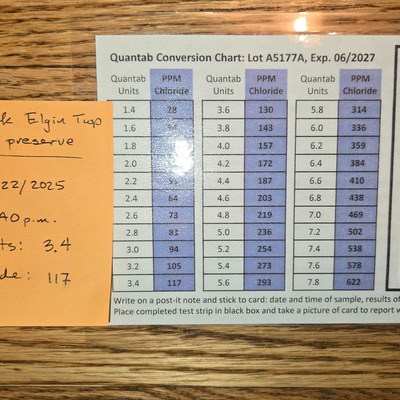 Elgin Twp
preserve
22/2025
40 p.m.
ts: 3.4
de: 117
Quantab Conversion Chart: Lot A5177A, Exp. 06/2027
Quantab Units PPM Chloride Quantab Units PPM Chloride Quantab Units PPM Chloride
1.4 28 3.6 130 5.8 314
1.6 3.8 143 6.0 336
1.8 4.0 157 6.2 359
2.0 4.2 172 6.4 384
2.2 4.4 187 6.6 410
2.4 64 4.6 203 6.8 438
2.6 73 4.8 219 7.0 469
2.8 83 5.0 236 7.2 502
3.0 94 5.2 254 7.4 538
3.2 105 5.4 273 7.6 578
3.4 117 5.6 293 7.8 622
Write on a post-it note and stick to card: date and time of sample, results of
Place completed test strip in black box and take a picture of card to report